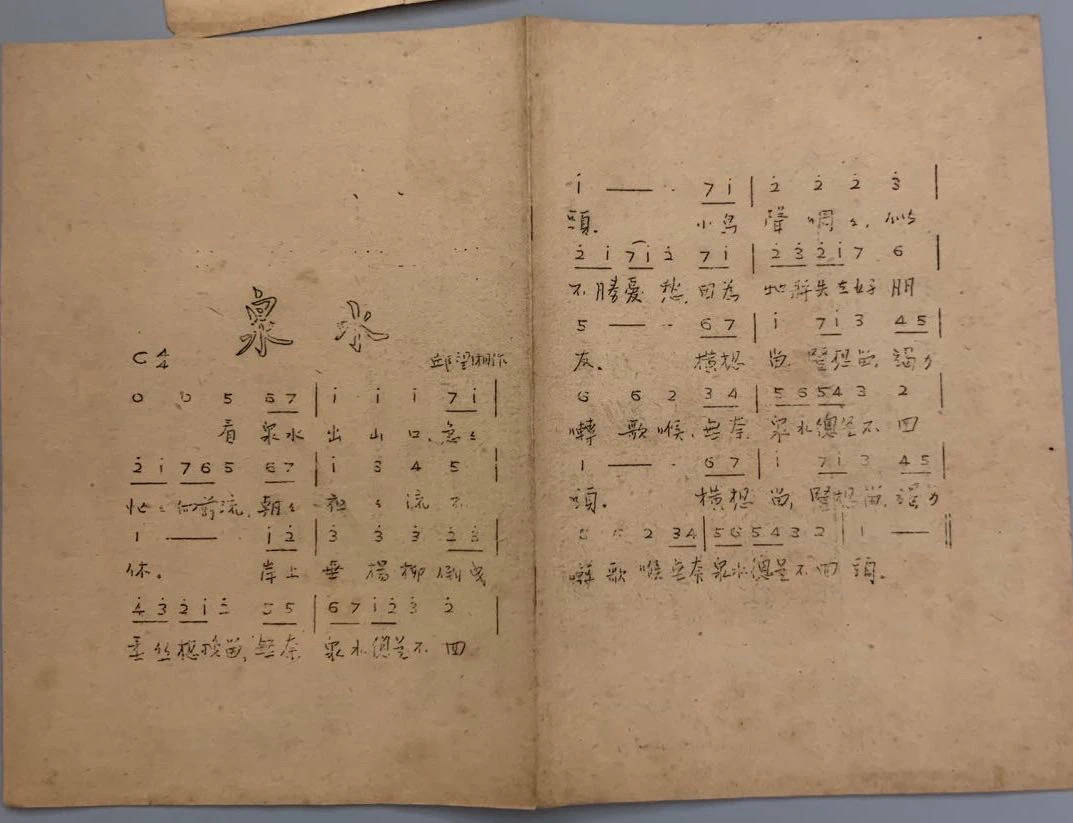 泉水
C 4/4 邱望湘作
0 0 5 6 7 | i i i 7 i |
看 泉水 出 山 口, 急々
2 i 7 6 5 6 7 | i 3 4 5 |
忙々向前流, 朝々 夜々流 不
1 — — i 2 | 3 3 3 2 3 |
休。 岸上 垂 楊 柳 倒曳
4 3 2 i 5 | 6 7 i 2 3 2 |
垂絲想挽留, 無奈 泉水總是不回
i — · 7 i | 2 2 2 3 |
頭。 小鳥 聲啁々, 似
2 i 7 i 2 7 i | 2 3 2 i 7 6
不勝憂愁, 因為 好朋
5 — · 6 7 | i 7 i 3 4 5 |
友。 橫想留, 豎想留, 竭力
6 6 2 3 4 | 5 6 5 4 3 2
囀歌喉, 無奈 泉水總是不回
1 — · 6 7 | i 7 i 3 4 5 |
頭。 橫想留, 豎想留, 竭力
6 2 3 4 | 5 6 5 4 3 2 | 1 — ·
囀歌喉無奈泉水總是不回頭。